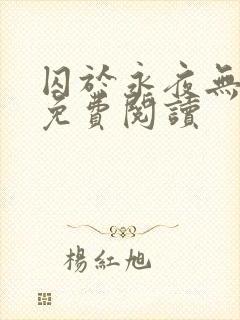 囚於永夜無
免費閱讀
楊紅旭